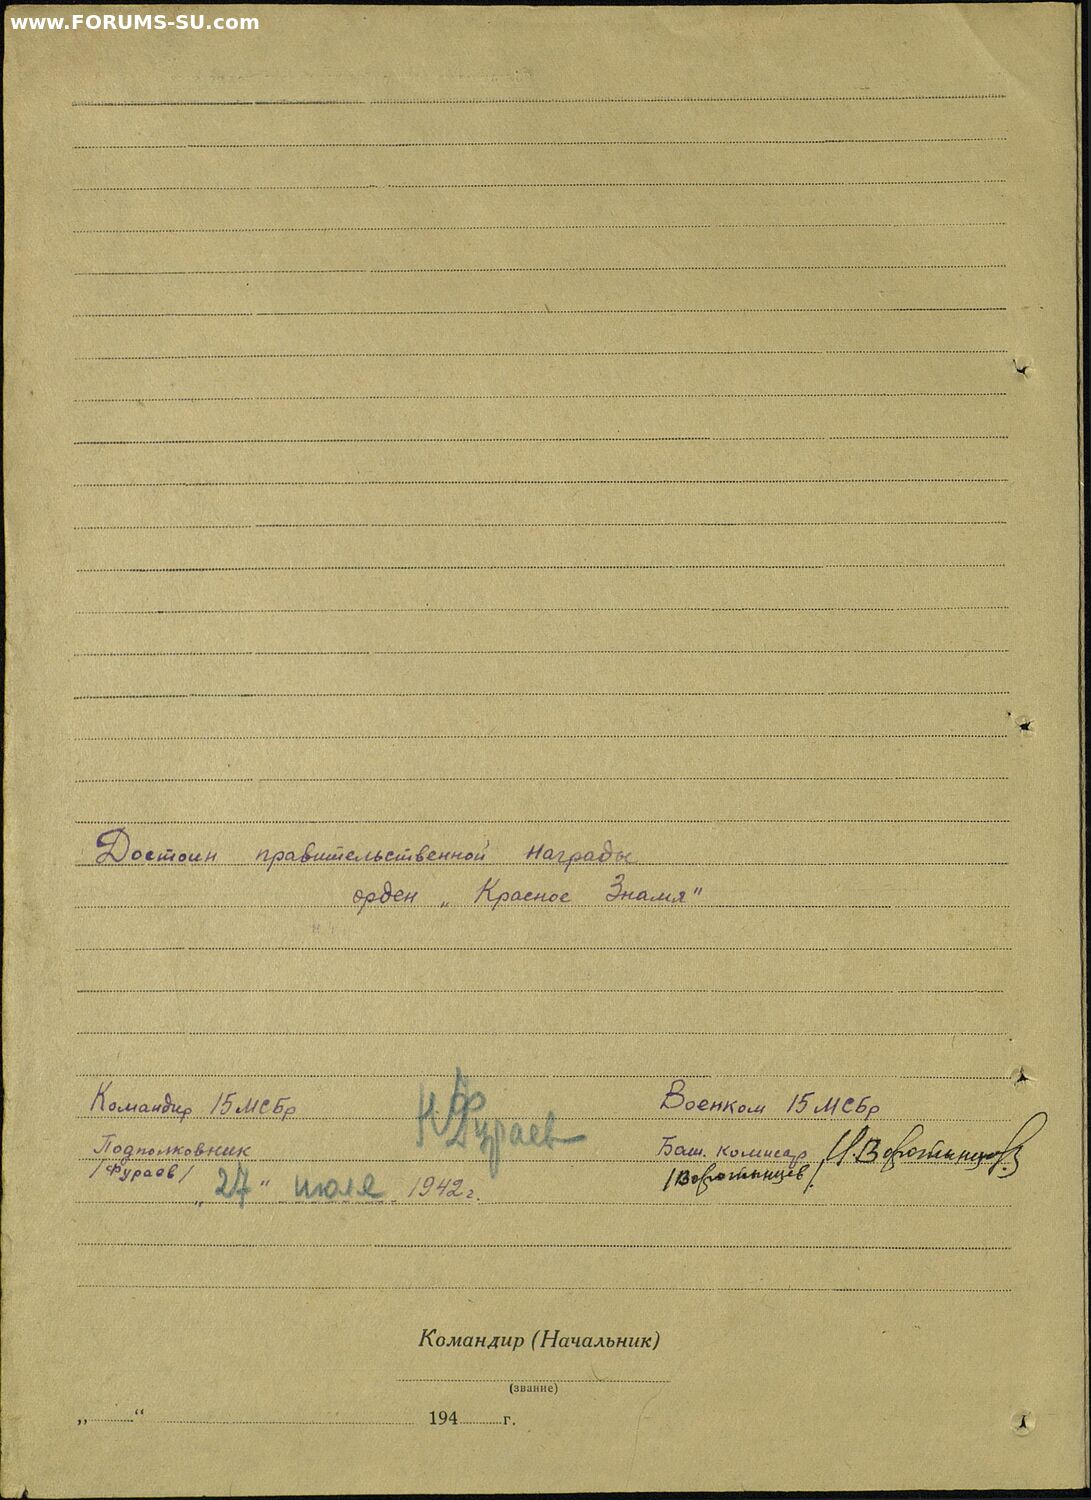 www.FORUMS-SU.com
Достоин правительственной награды
орден „Красное Знамя"
Командир 15 МСБр
Военком 15 МСБр
Подполковник
Н Фураев
Бат. комисар
И. Воротынцев
/Фураев/
/Воротынцев/
„27" июля 1942 г.
Командир (Начальник)
(звание)
„ “ 194 г.